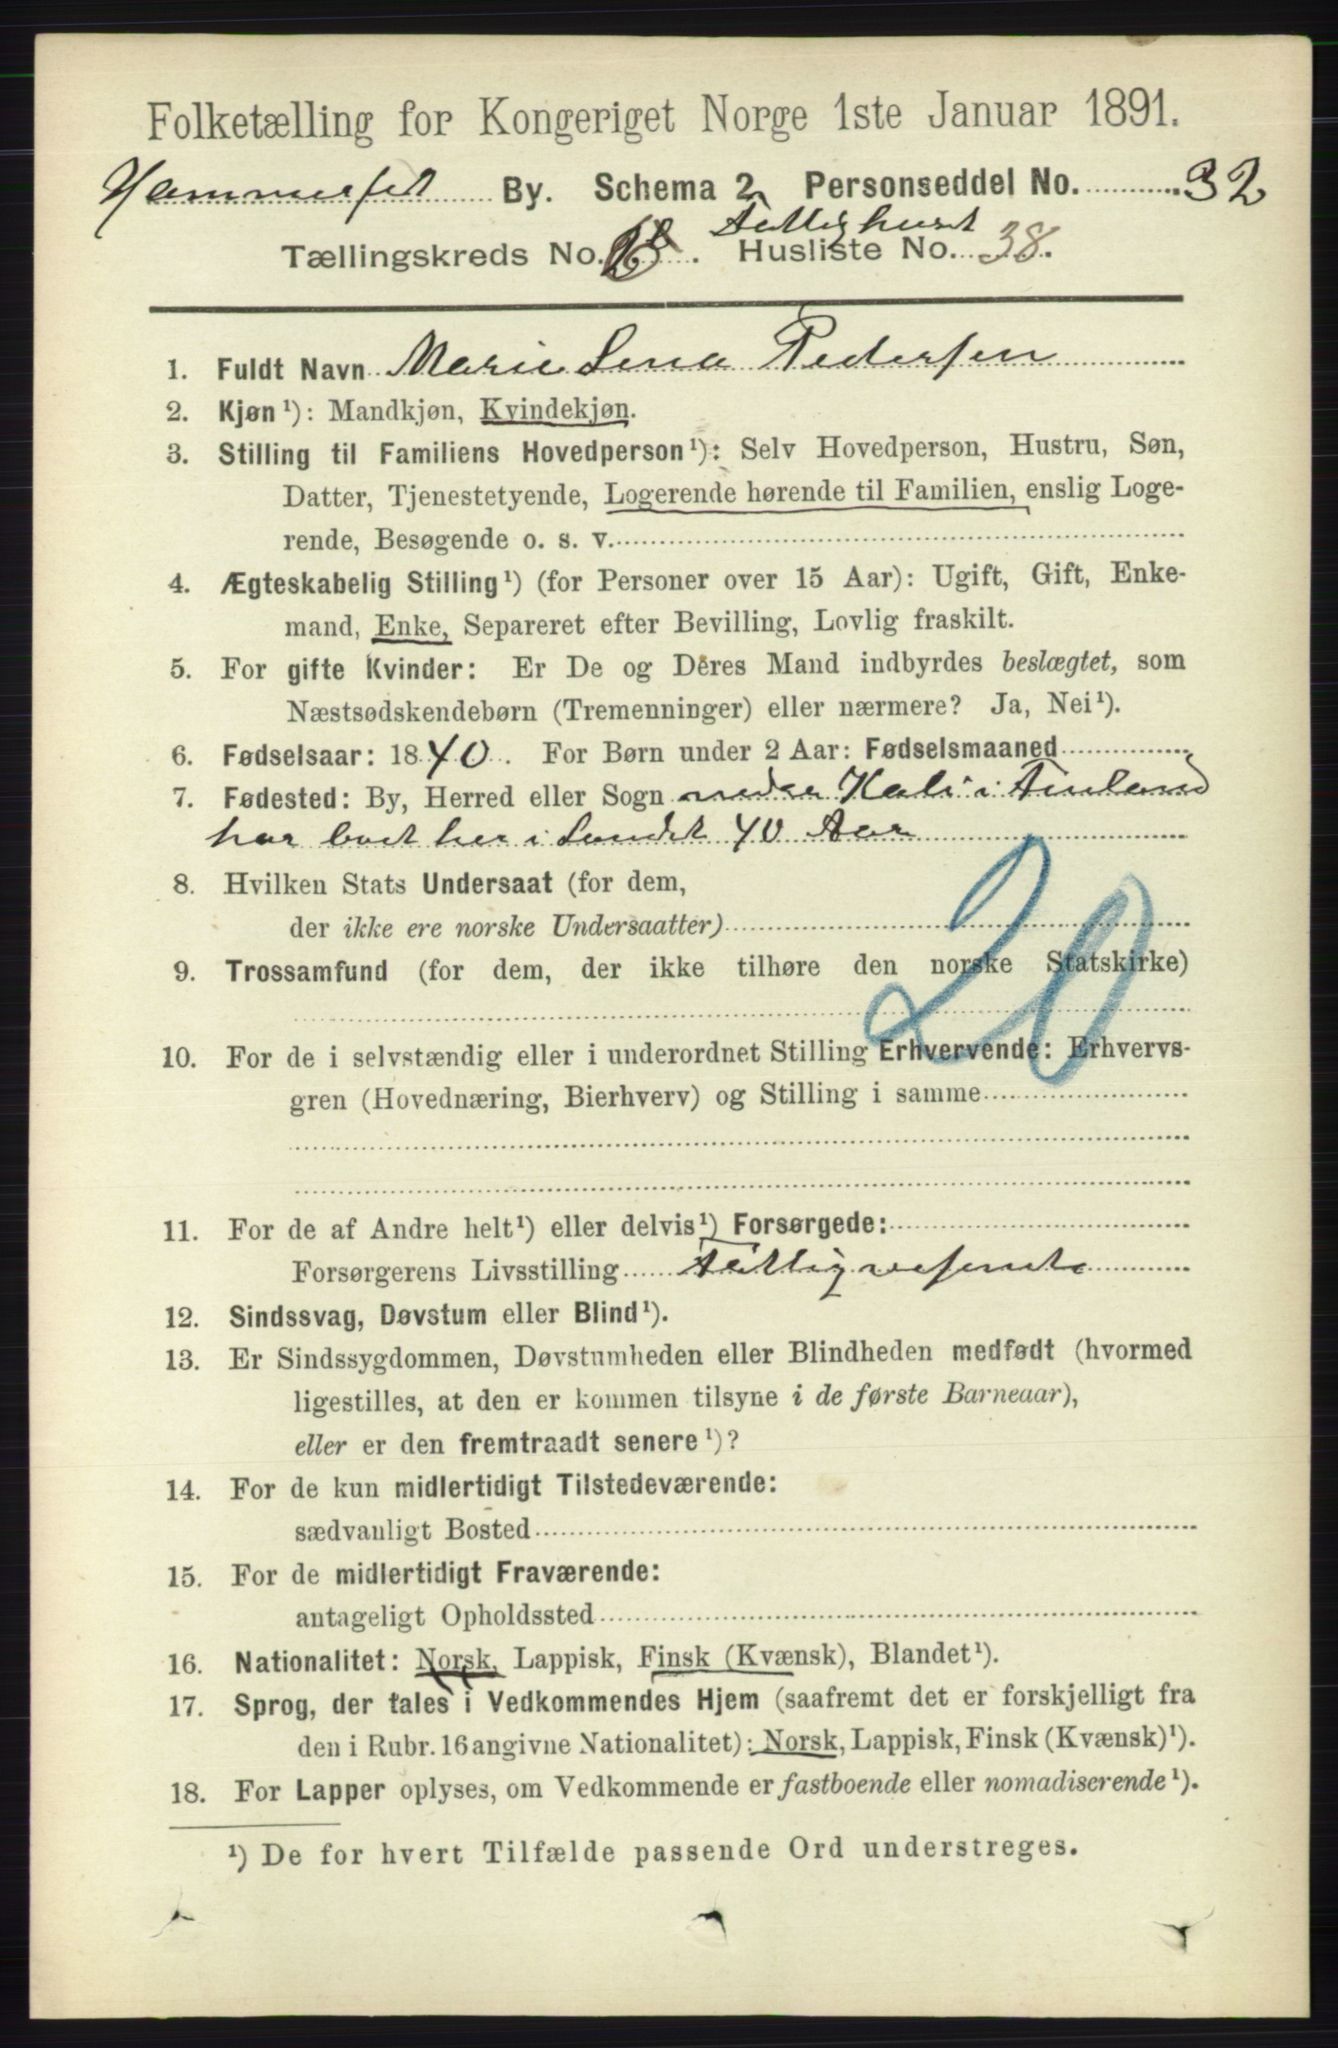 Folketælling for Kongeriget Norge 1ste Januar 1891.
Hammerfest By. Schema 2. Personseddel No. 32
Fattighuset
Tællingskreds No. Husliste No. 38.
1. Fuldt Navn Marie Lena Pedersen
2. Kjøn ¹): Mandkjøn, Kvindekjøn.
3. Stilling til Familiens Hovedperson ¹): Selv Hovedperson, Hustru, Søn,
Datter, Tjenestetyende, Logerende hørende til Familien, enslig Loge-
rende, Besøgende o. s. v.
4. Ægteskabelig Stilling ¹) (for Personer over 15 Aar): Ugift, Gift, Enke-
mand, Enke, Separeret efter Bevilling, Lovlig fraskilt.
5. For gifte Kvinder: Er De og Deres Mand indbyrdes beslægtet, som
Næstsødskendebørn (Tremenninger) eller nærmere? Ja, Nei ¹).
6. Fødselsaar: 1840. For Børn under 2 Aar: Fødselsmaaned
7. Fødested: By, Herred eller Sogn neder Kali i Finland
har boet her i Landet 40 Aar
8. Hvilken Stats Undersaat (for dem,
der ikke ere norske Undersaatter)
20
9. Trossamfund (for dem, der ikke tilhøre den norske Statskirke)
10. For de i selvstændig eller i underordnet Stilling Erhvervende: Erhvervs-
gren (Hovednæring, Bierhverv) og Stilling i samme
11. For de af Andre helt ¹) eller delvis ¹) Forsørgede:
Forsørgerens Livsstilling Fattigvesenet
12. Sindssvag, Døvstum eller Blind ¹).
13. Er Sindssygdommen, Døvstumheden eller Blindheden medfødt (hvormed
ligestilles, at den er kommen tilsyne i de første Barneaar),
eller er den fremtraadt senere ¹)?
14. For de kun midlertidigt Tilstedeværende:
sædvanligt Bosted
15. For de midlertidigt Fraværende:
antageligt Opholdssted
16. Nationalitet: Norsk, Lappisk, Finsk (Kvænsk), Blandet ¹).
17. Sprog, der tales i Vedkommendes Hjem (saafremt det er forskjelligt fra
den i Rubr. 16 angivne Nationalitet): Norsk, Lappisk, Finsk (Kvænsk) ¹).
18. For Lapper oplyses, om Vedkommende er fastboende eller nomadiserende ¹).
¹) De for hvert Tilfælde passende Ord understreges.